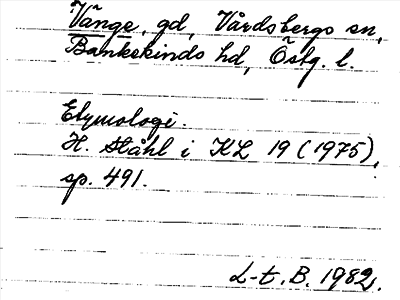 Vånge, gd, Vårdsbergs sn,
Bankekinds hd, Östg. l.
Etymologi.
H. Ståhl i KL 19 (1975),
sp. 491.
L-t. B. 1982.